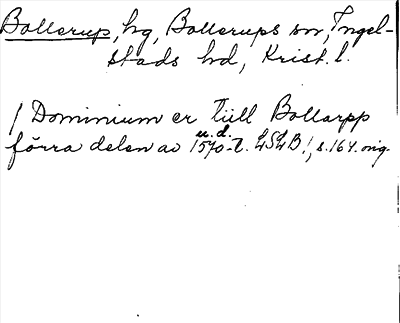 Bollerup, hg, Bollerups sn, Ingel-
stads hd, Krist. l.
/ Dominium er tiill Bollarpp
u. d.
förra delen av 1570-t. LSLB!, s. 164. orig.